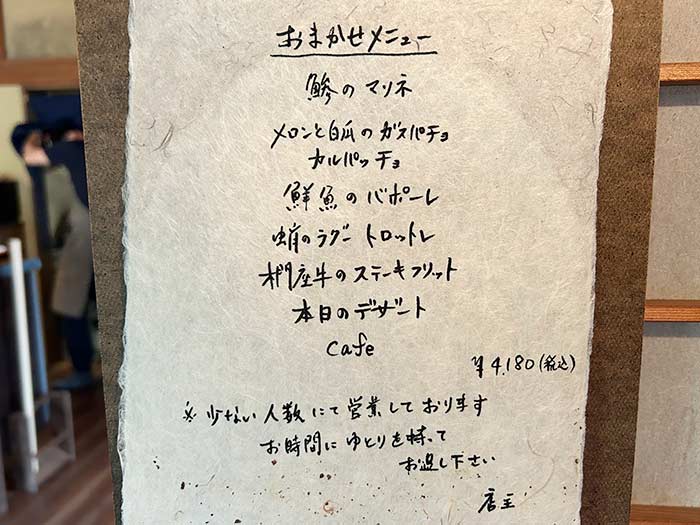 おまかせメニュー
鯵のマリネ
メロンと白瓜のガスパチョ
カルパッチョ
鮮魚のバポーレ
蛸のラグー トロットレ
椚座牛のステーキフリット
本日のデザート
cafe
¥4,180(税込)
※少ない人数にて営業しております
お時間にゆとりを持って
お越し下さい
店主